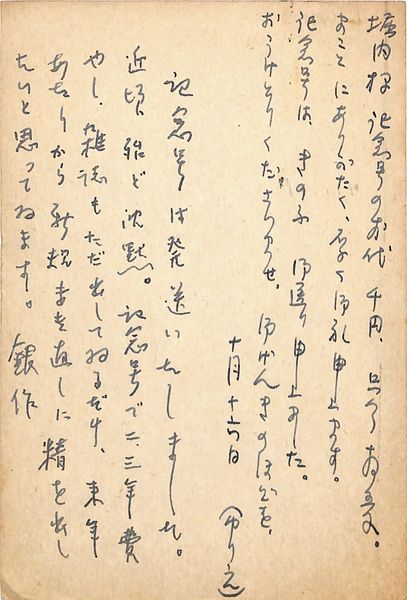 堀内様 記念号のお代 千円、
まことにありがたく、厚く御礼申上ます。
記念号は、きのふ 御送り申上ました。
おうけとりくださいませ。 御げんきのほどを、
十月十六日
記念号は発送いたしました。
近頃、殆ど沈黙。記念号で二、三年費
やし、雑誌もただ出してゐるだけ、来年
あたりから新規まき直しに精を出し
たいと思ってゐます。 銀作